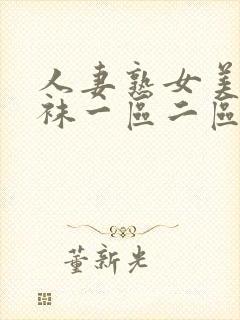 人妻熟女美
袜一區二區
董新光